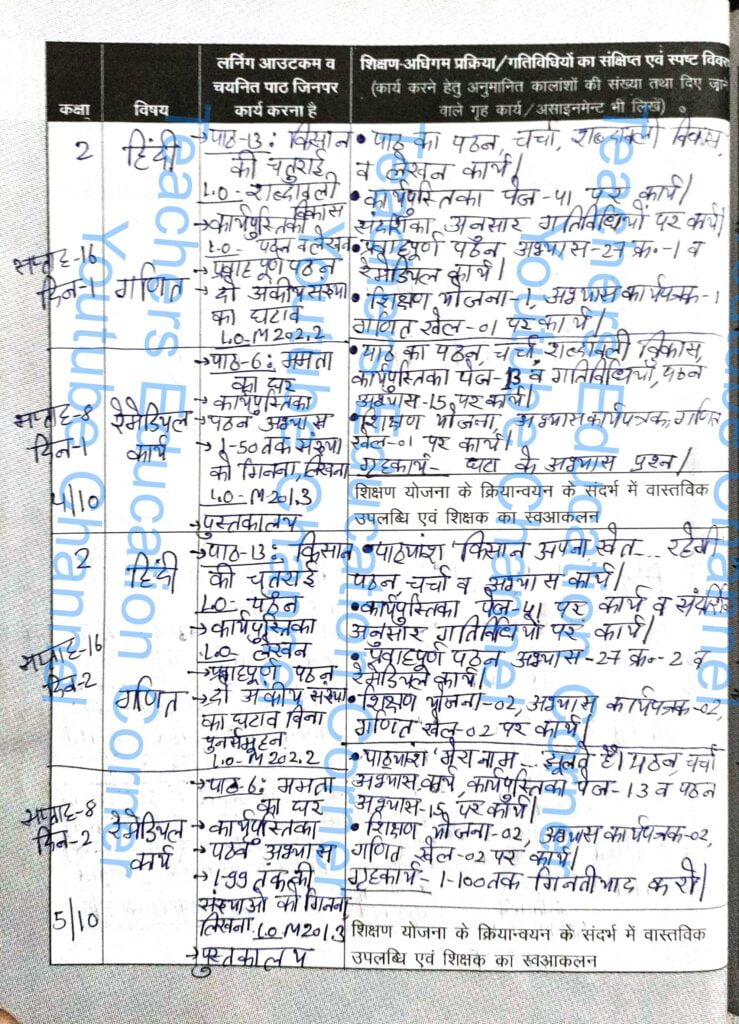 कक्षा
विषय
लर्निंग आउटकम व
चयनित पाठ जिनपर
कार्य करना है
शिक्षण-अधिगम प्रक्रिया/गतिविधियों का संक्षिप्त एवं स्पष्ट विवर
(कार्य करने हेतु अनुमानित कालांशों की संख्या तथा दिए जाने
वाले गृह कार्य/असाइनमेन्ट भी लिखें)
2
हिंदी
→पाठ-13: किसान
की चतुराई
L.O- शब्दावली
विकास
→कार्यपुस्तिका
L.O- पठन व लेखन
→प्रवाहपूर्ण पठन
• पाठ का पठन, चर्चा, शब्दावली विकास,
व लेखन कार्य।
• कार्यपुस्तिका पेज-41 पर कार्य।
संदर्शिका अनुसार गतिविधियों पर कार्य।
• प्रवाहपूर्ण पठन अभ्यास-27 क्र.-1 व
रेमेडियल कार्य।
सप्ताह-16
दिन-1
गणित
→ दो अंकीय संख्या
का घटाव
L.O-M202.2
• शिक्षण योजना-1, अभ्यास कार्यपत्रक-1
गणित खेल-01 पर कार्य।
सप्ताह-8
दिन-1
रेमेडियल
कार्य
→पाठ-6: ममता
का घर
→ कार्यपुस्तिका
→ पठन अभ्यास
→ 1-50 तक संख्या
को गिनना, लिखना
L.O-M201.3
→पुस्तकालय
• पाठ का पठन, चर्चा, शब्दावली विकास,
कार्यपुस्तिका पेज-13 व गतिविधियाँ, पठन
अभ्यास-15 पर कार्य।
• शिक्षण योजना, अभ्यास कार्यपत्रक, गणित
खेल-01 पर कार्य।
गृहकार्य- घटा के अभ्यास प्रश्न।
4/10
शिक्षण योजना के क्रियान्वयन के संदर्भ में वास्तविक
उपलब्धि एवं शिक्षक का स्वआकलन
2
हिंदी
→पाठ-13: किसान
की चतुराई
L.O- पठन
→ कार्यपुस्तिका
L.O- लेखन
→प्रवाहपूर्ण पठन
• पाठ्यांश 'किसान अपना खेत... रहेगी
पठन चर्चा व अभ्यास कार्य।
• कार्यपुस्तिका पेज-41 पर कार्य व संदर्शिका
अनुसार गतिविधियों पर कार्य।
• प्रवाहपूर्ण पठन अभ्यास-27 क्र.-2 व
रेमेडियल कार्य।
सप्ताह-16
दिन-2
गणित
→ दो अंकीय संख्या
का घटाव बिना
पुनर्समूहन
L.O-M202.2
• शिक्षण योजना-02, अभ्यास कार्यपत्रक-02,
गणित खेल-02 पर कार्य।
सप्ताह-8
दिन-2
रेमेडियल
कार्य
→पाठ-6: ममता
का घर
→ कार्यपुस्तिका
→ पठन अभ्यास
→ 1-99 तक की
संख्याओं को गिनना
लिखना L.O M201.3
→पुस्तकालय
• पाठ्यांश 'मेरा नाम... झूलते हैं। पठन, चर्चा
अभ्यास कार्य, कार्यपुस्तिका पेज-13 व पठन
अभ्यास-15 पर कार्य।
• शिक्षण योजना-02, अभ्यास कार्यपत्रक-02,
गणित खेल-02 पर कार्य।
गृहकार्य- 1-100 तक गिनती याद करो।
5/10
शिक्षण योजना के क्रियान्वयन के संदर्भ में वास्तविक
उपलब्धि एवं शिक्षक का स्वआकलन
Teachers Education Corner
Youtube Channel
Teachers Education Corner
Youtube Channel
Teachers Education Corner
Youtube Channel